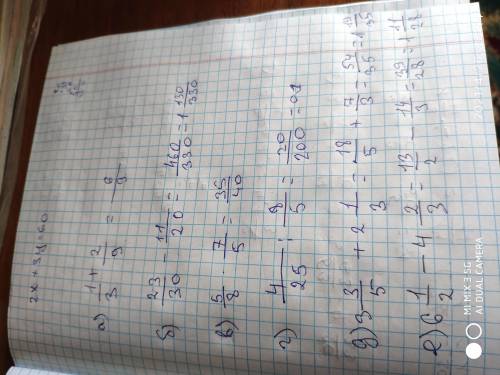 а) 1/3 + 2/9 = 6/9
б) 23/30 - 11/20 = 460/330 = 1 130/330
в) 5/8 · 7/5 = 35/40
г) 4/25 : 8/5 = 20/200 = 0,1
д) 3 3/5 + 2 1/3 = 18/5 + 7/3 = 54/35 = 1 19/35
е) 6 1/2 - 4 2/3 = 13/2 - 14/3 = 39/28 = 1 11/28
MI MIX 3 5G
AI DUAL CAMERA